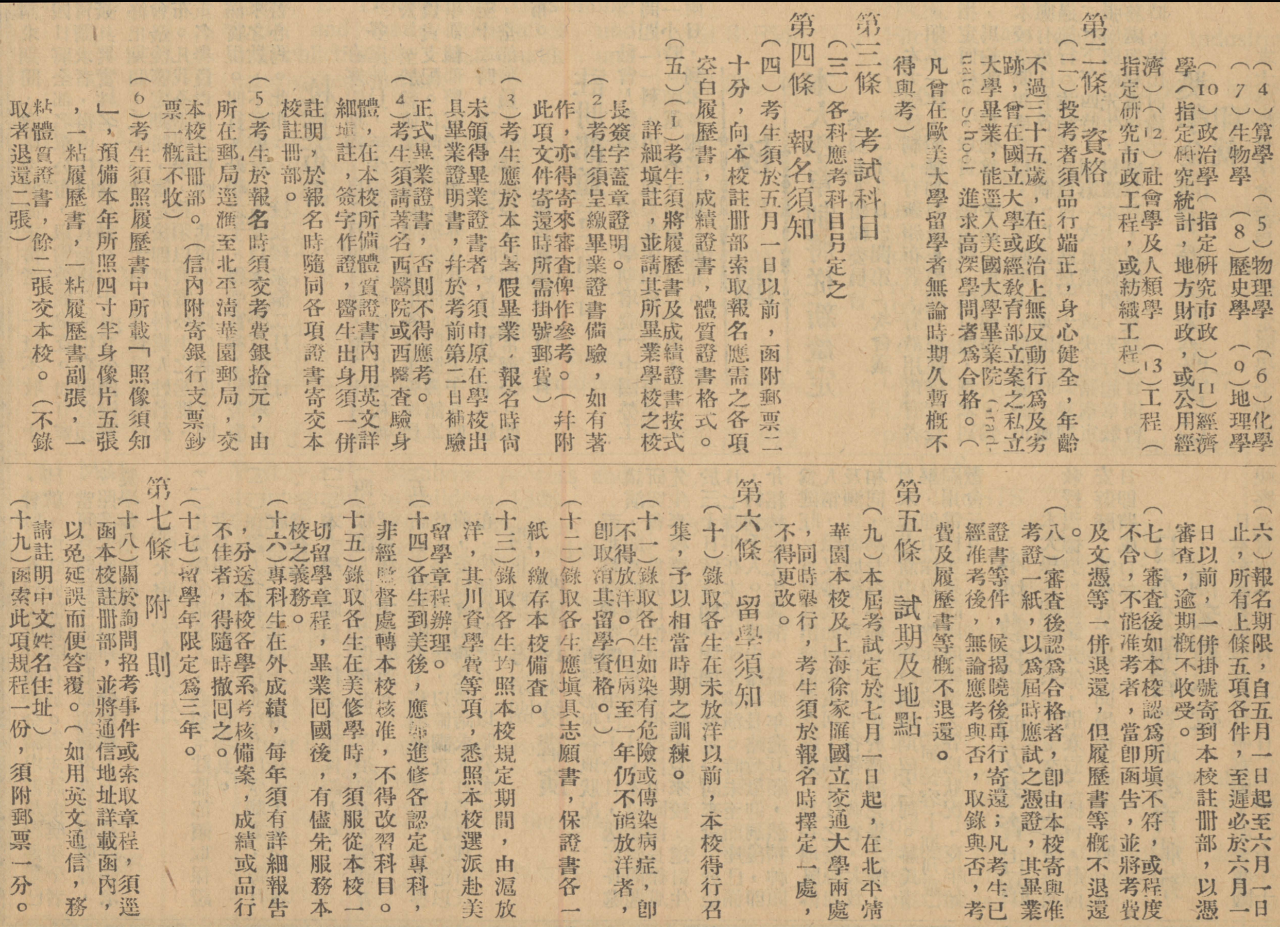 (4)算學 (5)物理學 (6)化學
(7)生物學 (8)歷史學 (9)地理學
(10)政治學(指定研究市政)(11)經濟
學(指定研究統計,地方財政,或公用經
濟)(12)社會學及人類學 (13)工程(
指定研究市政工程,或紡織工程)
第二條 資格
(二)投考者須品行端正,身心健全,年齡
不過三十五歲,在政治上無反動行爲及劣
跡,曾在國立大學或經敎育部立案之私立
大學畢業,能逕入美國大學畢業院(Grad-
uate School 進求高深學問者爲合格。(
凡曾在歐美大學留學者無論時期久暫概不
得與考)
第三條 考試科目
(三)各科應考科目另定之
第四條 報名須知
(四)考生須於五月一日以前,函附郵票二
十分,向本校註冊部索取報名應需之各項
空白履歷書,成績證書,體質證書格式。
(五)(1)考生須將履歷書及成績證書按式
詳細塡註,並請其所畢業學校之校
長簽字蓋章證明。
(2)考生須呈繳畢業證書備驗,如有著
作,亦得寄來審査俾作參考。(幷附
此項文件寄還時所需掛號郵費)
(3)考生應於本年暑假畢業,報名時尙
未領得畢業證書者,須由原在學校出
具畢業證明書,幷於考前第二日補驗
正式畢業證書,否則不得應考。
(4)考生須請著名西醫院或西醫查驗身
體,在本校所備體質證書內用英文詳
細塡註,簽字作證,醫生出身須一併
註明,於報名時隨同各項證書寄交本
校註冊部。
(5)考生於報名時須交考費銀拾元,由
所在郵局逕滙至北平淸華園郵局,交
本校註冊部。(信內附寄銀行支票鈔
票一概不收)
(6)考生須照履歷書中所載「照像須知
」,預備本年所照四寸半身像片五張
,一粘履歷書,一粘履歷書副張,一
粘體質證書,餘二張交本校。(不錄
取者退還二張)
(六)報名期限,自五月一日起至六月一日
止,所有上條五項各件,至遲必於六月一
日以前,一併掛號寄到本校註冊部,以憑
審查,逾期概不收受。
(七)審查後如本校認爲所塡不符,或程度
不合,不能准考者,當卽函告,並將考費
及文憑等一併退還,但履歷書等概不退還
。
(八)審查後認爲合格者,卽由本校寄與准
考證一紙,以爲屆時應試之憑證,其畢業
證書等件,候揭曉後再行寄還;凡考生已
經准考後,無論應考與否,取錄與否,考
費及履歷書等概不退還。
第五條 試期及地點
(九)本屆考試定於七月一日起,在北平淸
華園本校及上海徐家匯國立交通大學兩處
,同時舉行,考生須於報名時擇定一處,
不得更改。
第六條 留學須知
(十)錄取各生在未放洋以前,本校得行召
集,予以相當時期之訓練。
(十一)錄取各生如染有危險或傳染病症,卽
不得放洋。(但病至一年仍不能放洋者,
卽取消其留學資格。)
(十二)錄取各生應塡具志願書,保證書各一
紙,繳存本校備查。
(十三)錄取各生均照本校規定期間,由滬放
洋,其川資學費等項,悉照本校選派赴美
留學章程辦理。
(十四)各生到美後,應卽進修各認定專科,
非經監督處轉本校核准,不得改習科目。
(十五)錄取各生在美修學時,須服從本校一
切留學章程,畢業回國後,有儘先服務本
校之義務。
(十六)專科生在外成績,每年須有詳細報告
,分送本校各學系考核備案,成績或品行
不佳者,得隨時撤回之。
(十七)留學年限定爲三年。
第七條 附 則
(十八)關於詢問招考事件或索取章程,須逕
函本校註冊部,並將通信地址詳載函內,
以免延誤而便答覆。(如用英文通信,務
請註明中文姓名住址)
(十九)函索此項規程一份,須附郵票一分。